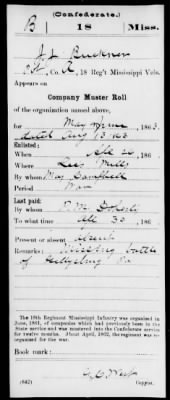 (Confederate.)
B 18 Miss.
J J Buckner
Co. , 18 Reg't Mississippi Vols.
Appears on
Company Muster Roll
of the organization named above,
for May & June, 1863.
dated Aug 13 63
Enlisted:
When , 186
Where Lees Mills
By whom Maj Campbell
Period War
Last paid:
By whom
To what time 30, 186
Present or absent absent
Remarks: Missing battle
of Gettysburg Pa
The 18th Regiment Mississippi Infantry was organized in
June, 1861, of companies which had previously been in the
State service and was mustered into the Confederate service
for twelve months. About April, 1862, the regiment was re-
organized for the war.
Book mark:
(642) Copyist.